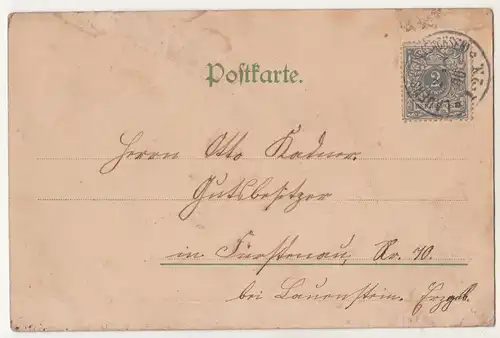 Postkarte.
2
Herrn Otto Kadner.
Gutsbesitzer
in Fürstenau, Nr. 70.
bei Lauenstein. Erzgeb.